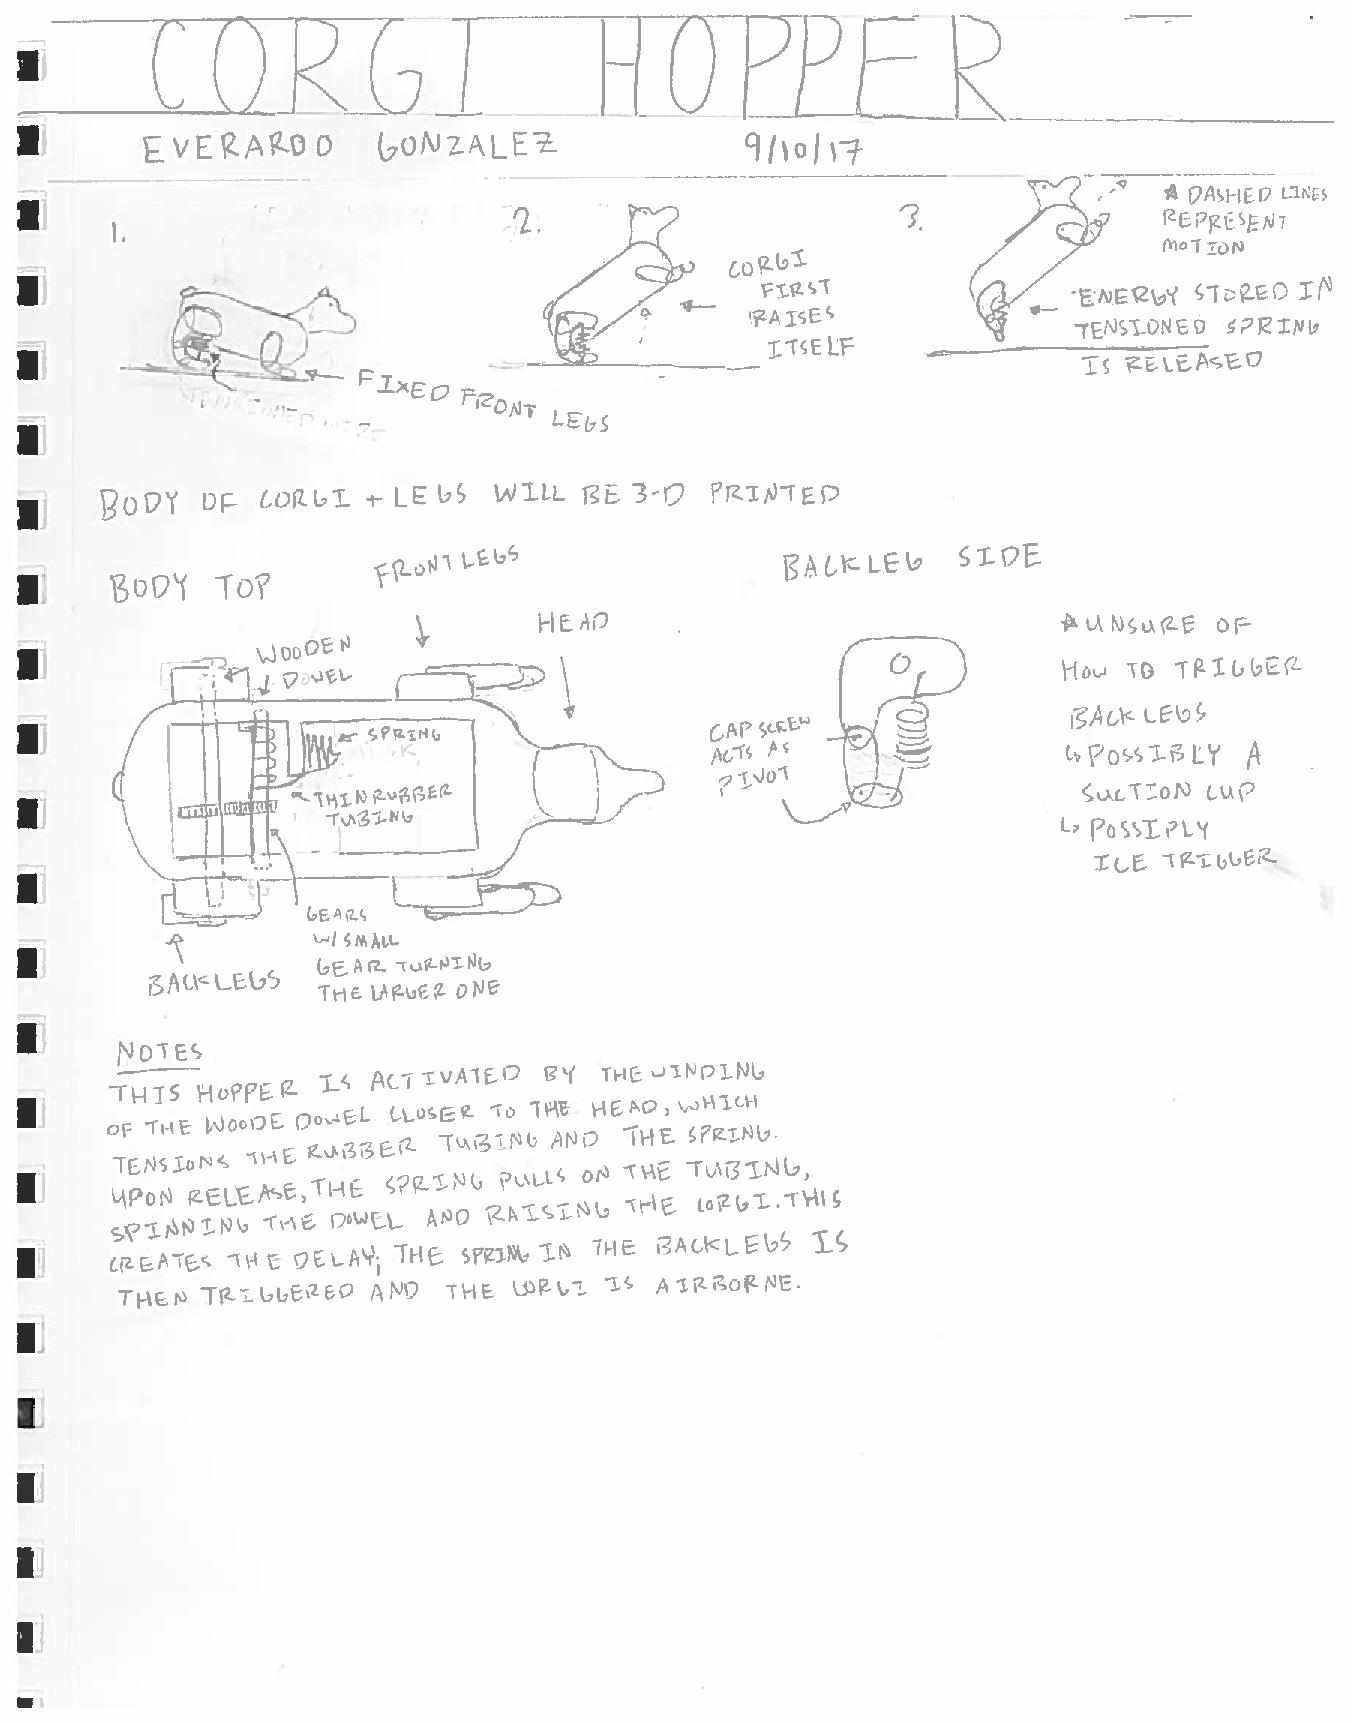 CORGI HOPPER
EVERARDO GONZALEZ 9/10/17
1.
FIXED FRONT LEGS
2.
CORGI
FIRST
RAISES
ITSELF
3.
* DASHED LINES
REPRESENT
MOTION
ENERGY STORED IN
TENSIONED SPRING
IS RELEASED
BODY OF CORGI + LEGS WILL BE 3-D PRINTED
BODY TOP
FRONT LEGS
HEAD
WOODEN
DOWEL
SPRING
THIN RUBBER
TUBING
GEARS
W/ SMALL
GEAR TURNING
THE LARGER ONE
BACK LEGS
BACK LEG SIDE
CAP SCREW
ACTS AS
PIVOT
* UNSURE OF
HOW TO TRIGGER
BACK LEGS
↳ POSSIBLY A
SUCTION CUP
↳ POSSIPLY
ICE TRIGGER
NOTES
THIS HOPPER IS ACTIVATED BY THE WINDING
OF THE WOODE DOWEL CLOSER TO THE HEAD, WHICH
TENSIONS THE RUBBER TUBING AND THE SPRING.
UPON RELEASE, THE SPRING PULLS ON THE TUBING,
SPINNING THE DOWEL AND RAISING THE CORGI. THIS
CREATES THE DELAY; THE SPRING IN THE BACKLEGS IS
THEN TRIGGERED AND THE CORGI IS AIRBORNE.